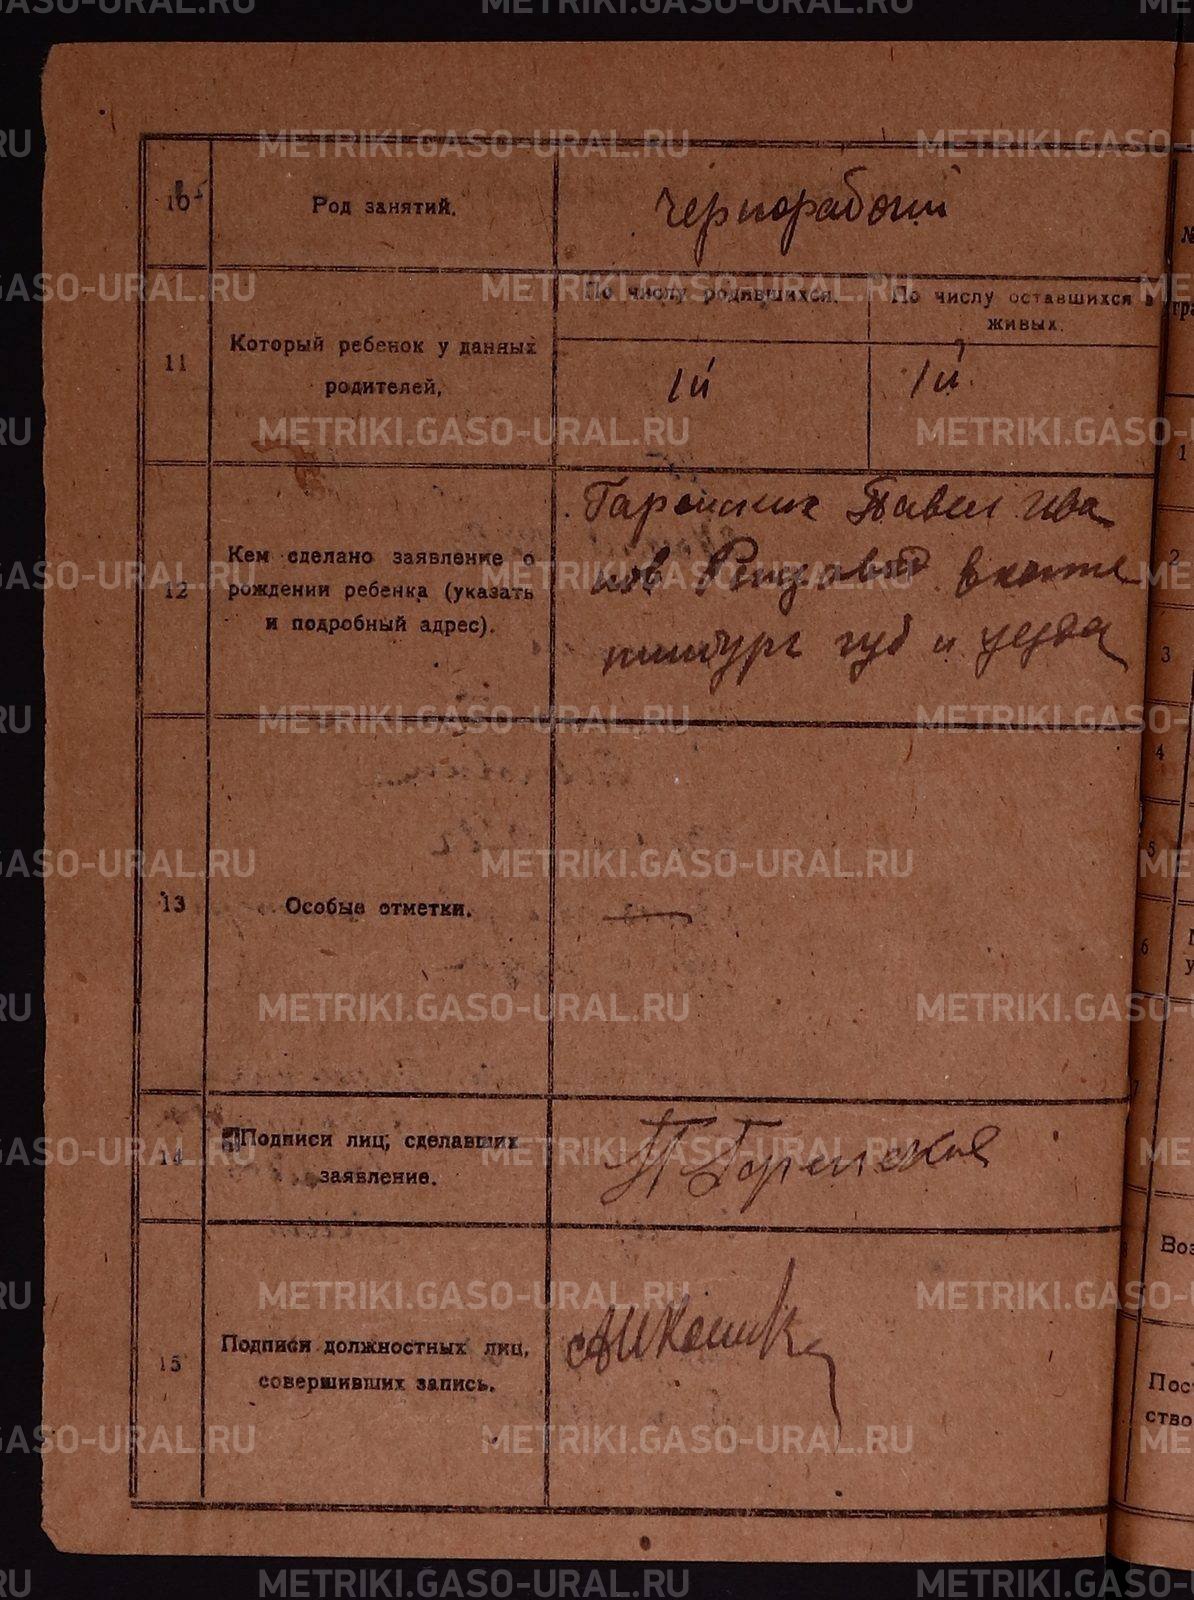 10
Род занятий.
чернорабочий
11
Который ребенок у данных
родителей.
По числу родившихся.
По числу оставшихся в
живых.
1й
1й
12
Кем сделано заявление о
рождении ребенка (указать
и подробный адрес).
Павел Ива
нов
губ и уезда
13
Особые отметки.
14
Подписи лиц, сделавших
заявление.
15
Подписи должностных лиц,
совершивших запись.
1
2
3
4
5
6
Воз
Пос
ство
METRIKI.GASO-URAL.RU